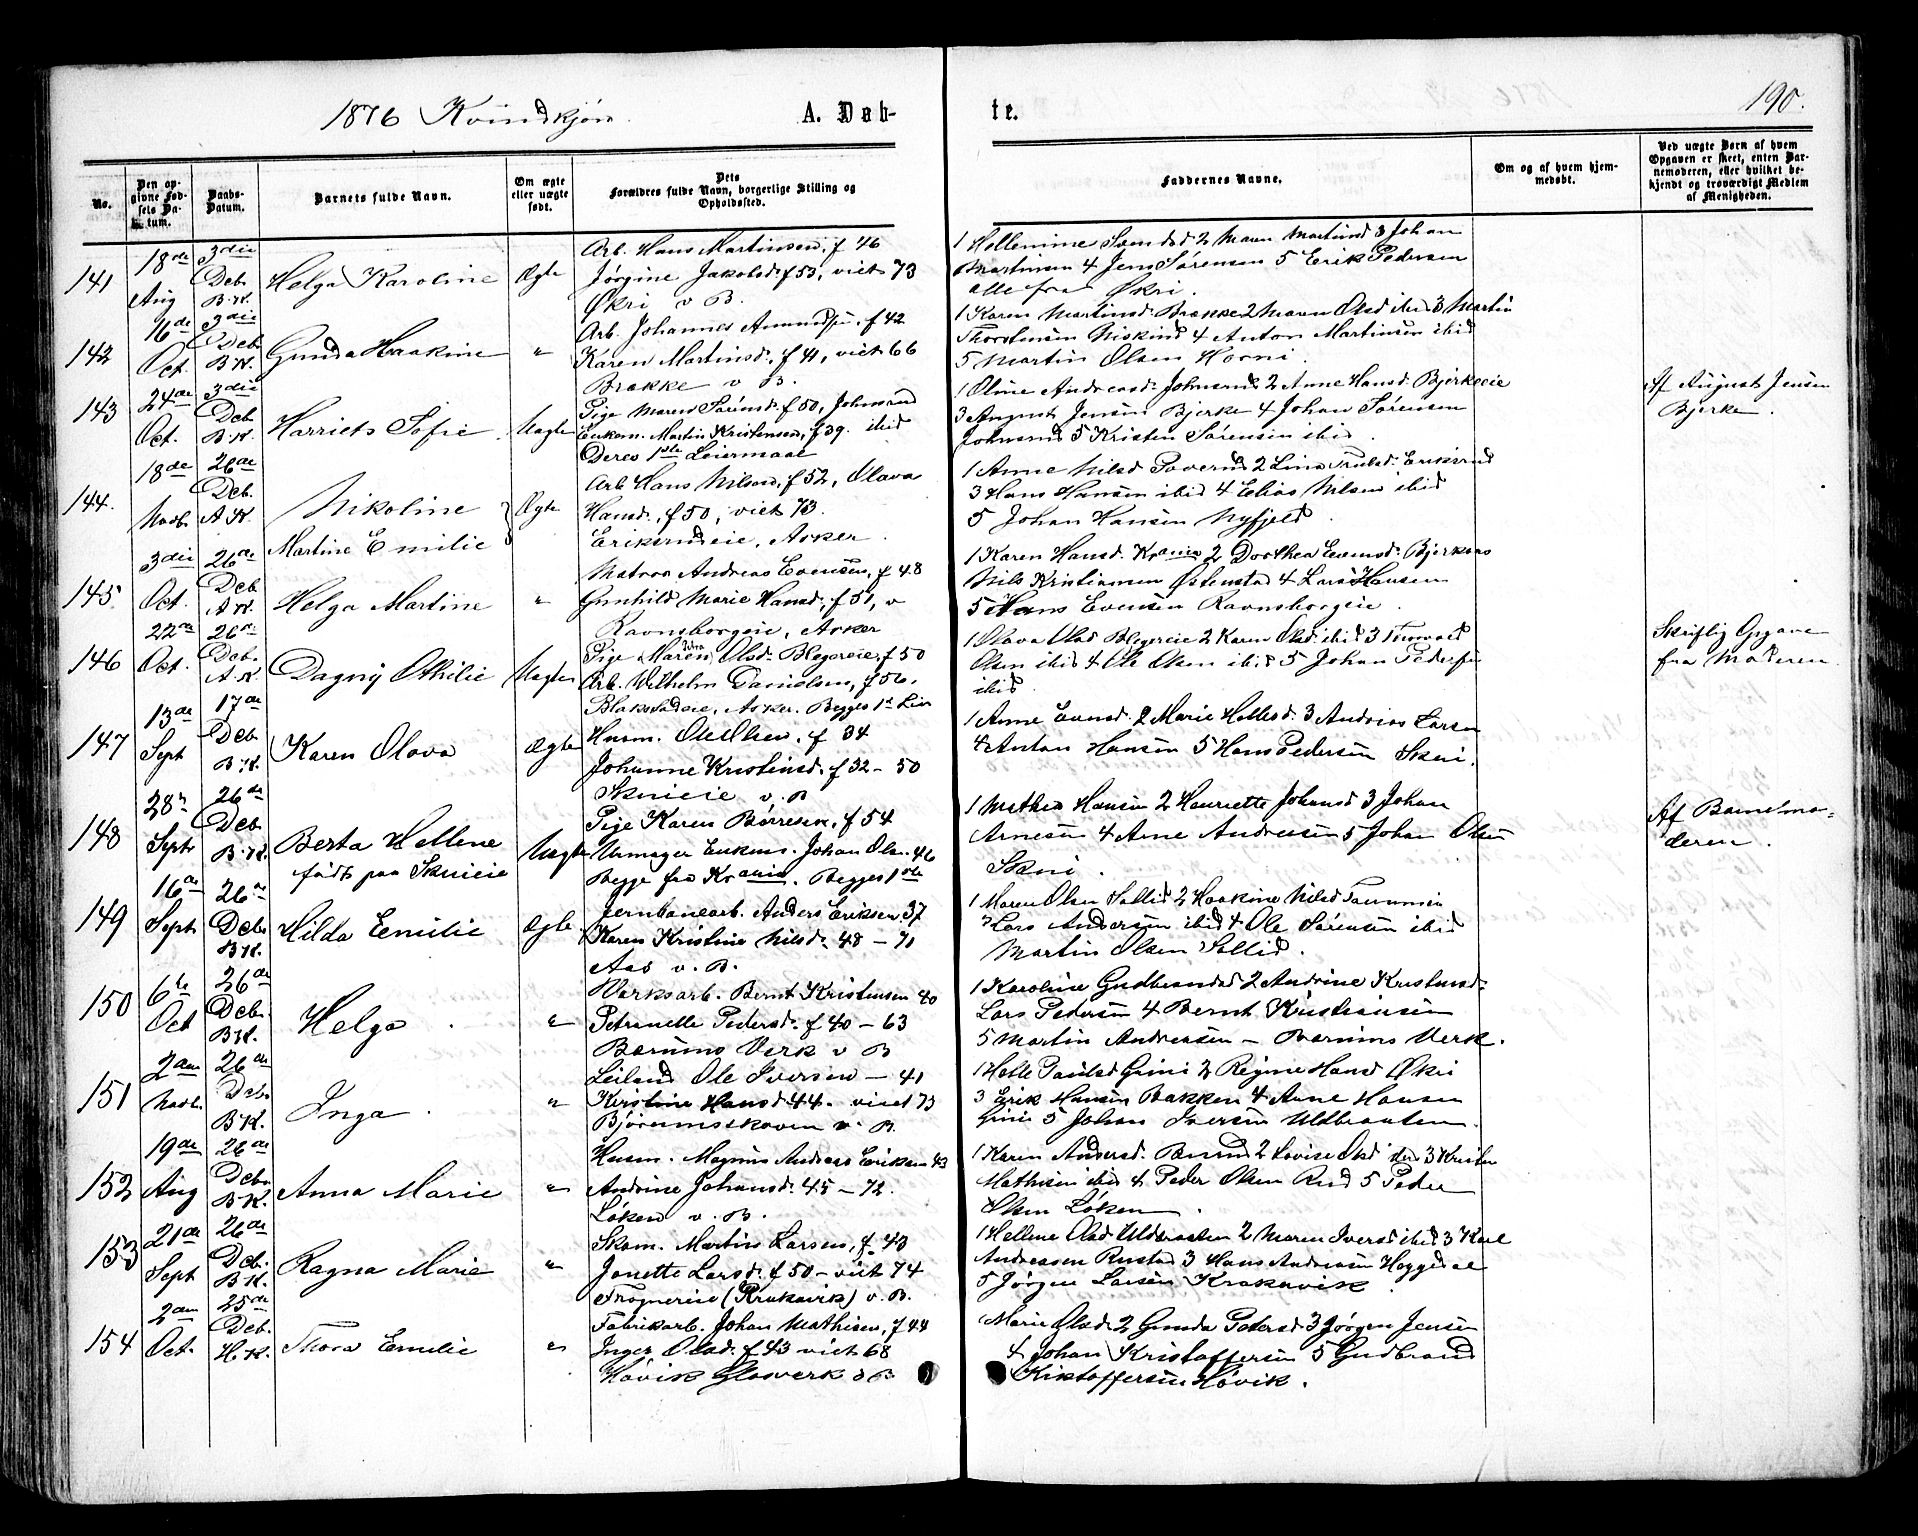 1876 Kvindkjøn. A. Døb-
te. 190.
No.
Den op-
givne Fød-
sels Da-
tum.
Daabs-
Datum.
Barnets fulde Navn.
Om ægte
eller uægte
født.
Dets
Forældres fulde Navn, borgerlige Stilling og
Opholdssted.
Faddernes Navne.
Om og af hvem hjem-
medøbt.
Ved uægte Børn af hvem
Opgaven er skeet, enten Bar-
nemoderen, eller hvilket be-
kjendt og troværdigt Medlem
af Menigheden.
141
18de
Aug
3die
Decb.
B.K.
Helga Karoline
Ægte
Arb. Hans Martinsen, f 46
Jørgine Jakobsd. f 53, viet 73
Økri v B.
1 Hellemine Svendsd 2 Maren Martinsd 3 Johan
Martinsen 4 Jens Sørensen 5 Erik Pedersen
alle fra Økri.
142
16de
Oct.
3die
Decb.
B.K.
Gunda Haakine
"
Arb. Johannes Amundsen, f 42
Karen Martinsd., f 41, viet 66
Brække v B.
1 Karen Martinsd. Brække 2 Maren Olsd ibid 3 Martin
Thorstensen Niskind 4 Anton Martinsen ibid
5 Martin Olsen Horni.
143
24de
Oct.
3die
Decb.
B.K.
Harriet Sofie
Uægte
Pige Maren Sørensd. f 50, Johnsrud
Enkem. Martin Kristensen, f 39. ibid
Deres 1ste Leiermaal
1 Oline Andreasd. Johnsrud 2 Anne Hansd. Bjerkeeie
3 August Jensen Bjerke 4 Johan Sørensen
Johnsrud 5 Kristen Sørensen ibid.
Af August Jensen
Bjerke.
144.
18de
Novb.
26de
Decb.
A.K.
Nikoline
Martine Emilie
Ægte
Arb. Hans Nilsen, f 52, Olava
Hansd., f 50, viet 73.
Eriksrudeie, Asker.
1 Anne Nilsd 2 Lina Eriksrud
3 Hans Hansen ibid 4 Elias Nilsen ibid
5 Johan Hansen Nyfjeld.
145.
3die
Oct.
26de
Decb
A.K.
Helga Martine
"
Matros Andreas Evensen, f 48
Gunhild Marie Hansd., f 51, v
Ravnsborgeie, Asker
1 Karen Hansd. Krania 2 Dorthea Evensd. Bjerkaas
Nils Kristiansen Østenstad 4 Lars Hansen
5 Hans Evensen Ravnsborgeie.
146
22de
Oct.
26de
Decb.
A.K.
Dagny Othilie
Uægte
Pige Maren Olsd. Blegereie, f 50
Arb. Vilhelm Danielsen, f 56,
Blakstadeie, Asker. Begges 1ste Leier
1 Olava Olsd Blegereie 2 Karen Olsd ibid 3 Thorvald
Olsen ibid 4 Ole Olsen ibid 5 Johan Pedersen
ibid.
Skriftlig Opgave
fra Moderen.
147
13de
Sept
17de
Decb.
B.K.
Karen Olava
Ægte
Husm. Ole Olsen, f 34
Johanne Kristensd. f 32 – 50
Skuieie v. B
1 Anne Evensd. 2 Marie Hellesd. 3 Andreas Larsen
4 Anton Hansen 5 Hans Pedersen Skui.
148
28de
Septr
26de
Decb
B.K.
Berta Hellene
født paa Skuieie
Uægte
Pige Karen Børresen, f 54
Urmager Enkem. Johan Olsen 46
Begge fra Krania. Begges 1ste
1 Mathea Hansen 2 Henriette Johansd 3 Johan
Arnesen 4 Arne Andresen 5 Johan Olsen
Skui.
Af Barnetmo-
deren.
149
16de
Septr
26de
Decb.
B.K.
Hilda Emilie
Ægte
Jernbanearb. Anders Eriksen 37
Karen Kristine Nilsd. 48 – 71
Aas v. B.
1 Maren Olsen Sollid 2 Haakine Nilsd
3 Lars Andersen ibid 4 Ole Sørensen ibid
Martin Olsen Sollid.
150
6te
Oct
26de
Decbr.
B.K.
Helga
"
Værksarb. Bernt Kristensen 40
Petronelle Pedersd. f 40 – 63
Bærums Verk v B
1 Karoline Gudbrandsd 2 Andrine Kristensd-
Lars Pedersen 4 Bernt Kristiansen
5 Martin Andreasen – Bærums Verk.
151
2den
Novb.
26de
Decb.
B.K.
Inga
"
Leilænd Ole Iversen – 41
Kirstine Hansd. 44 – viet 73
Bjørumskoven v. B.
1 Helle Paulsd Grini 2 Regine Hansd Økri
3 Erik Hansen Bakken 4 Arne Hansen
Grini 5 Johan Iversen Uldbraaten.
152
19de
Aug
26de
Decb.
B.K.
Anna Marie
"
Husm. Magnus Andreas Eriksen 43
Andrine Johansd. 45 – 72.
Løken v. B.
1 Karen Andersd. 2 Lovise Olsd ibid 3 Kristen
Mathisen ibid 4 Peder Olsen Rud 5 Peder
Olsen Løken.
153
21de
Sept
26de
Decb.
B.K.
Ragna Marie
"
Skom. Martin Larsen, f. 43
Jonette Larsd. f 50 – viet 74
Frognereie (Krakavik) v. B.
1 Hellene Olsd Uldbraaten 2 Maren Iversd ibid 3 Karl
Andreasen Rustad 3 Hans Andersen Heggedal
5 Jørgen Larsen Krakavik.
154
2den
Oct.
25de
Decb.
H.K.
Thora Emilie
"
Fabrikarb. Johan Mathisen, f 44
Inger Olsd. f 43 viet 68
Høvik Glasverk v B
Marie Olsd. 2 Gunda Pedersd 3 Jørgen Jensen
4 Johan Kristoffersen 5 Gudbrand
Kristoffersen Høvik.